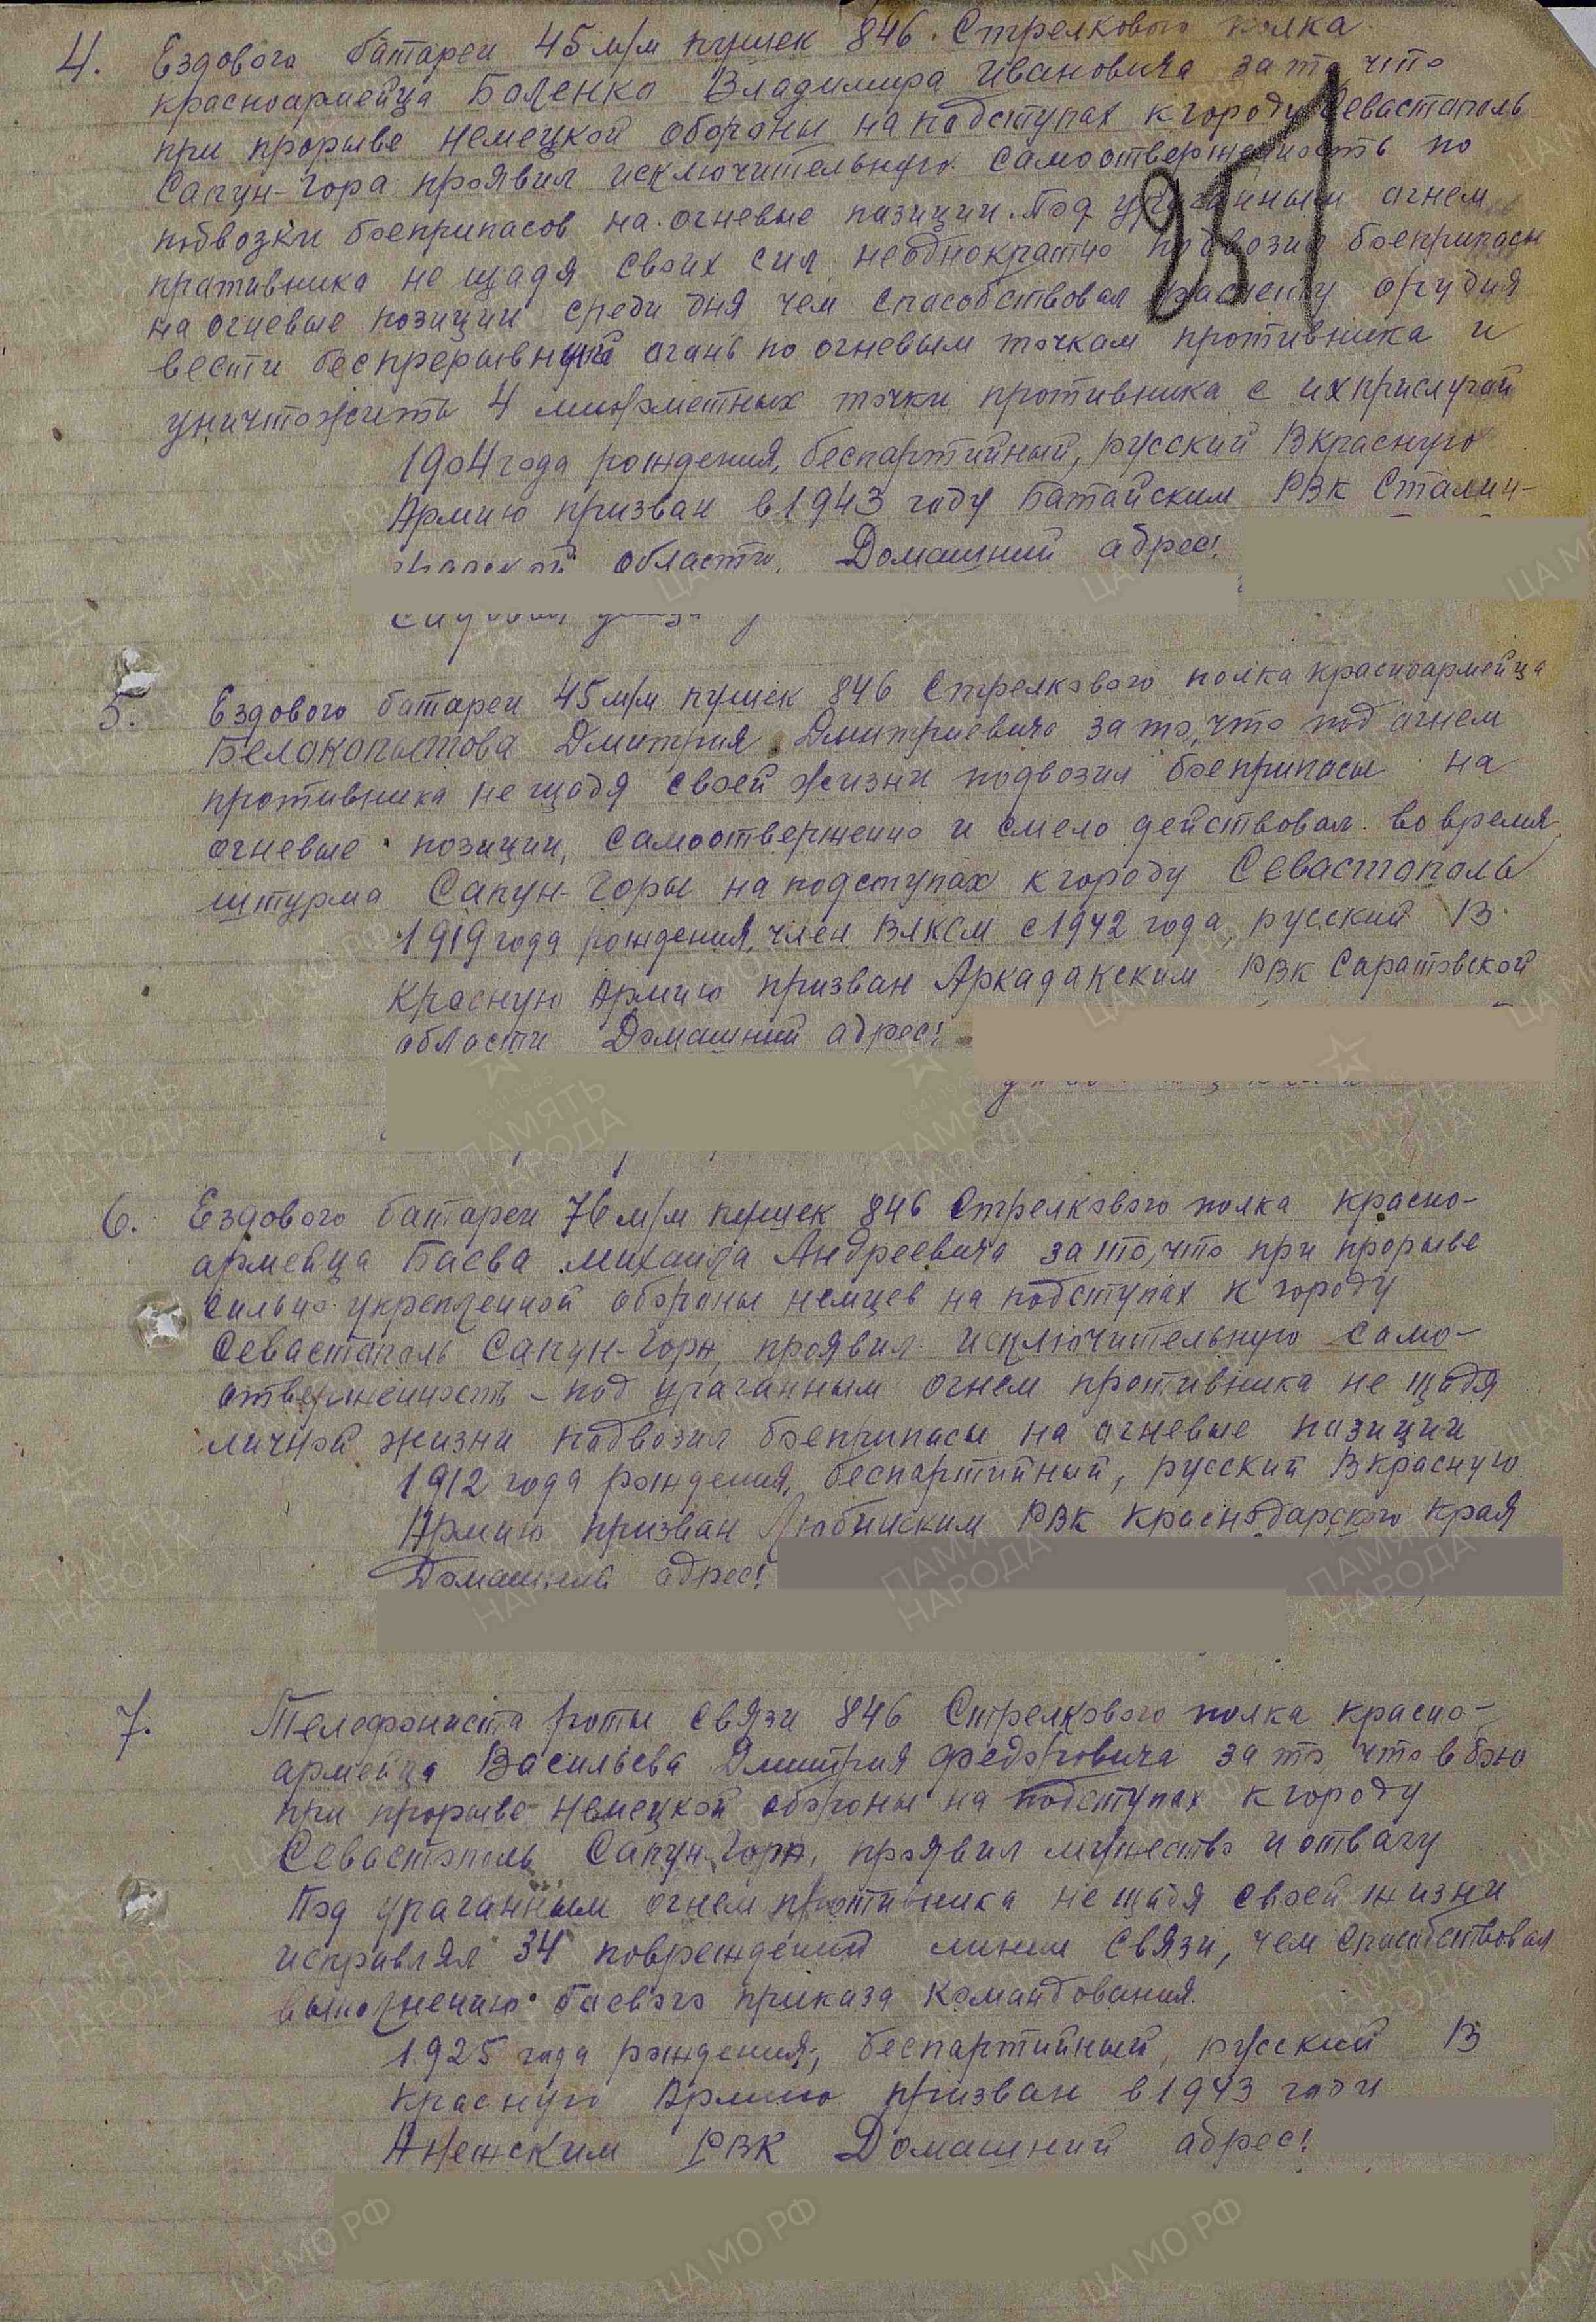 4. Ездового батареи 45 м/м пушек 846 Стрелкового полка
красноармейца Баленко Владимира Ивановича за то, что
при прорыве немецкой обороны на подступах к городу Севастополь
Сапун-Гора проявил исключительную самоотверженность по
подвозки боеприпасов на огневые позиции. Под ураганным огнем
противника не щадя своих сил неоднократно подвозил боеприпасы
на огневые позиции среди дня чем способствовал расчету орудия
вести беспрерывный огонь по огневым точкам противника и
уничтожить 4 минометных точки противника с их прислугой
1904 года рождения, беспартийный, русский В красную
Армию призван в 1943 году Батайским РВК Сталин-
области. Домашний адрес:
251
5. Ездового батареи 45 м/м пушек 846 Стрелкового полка красноармейца
Белокопытова Дмитрия Дмитриевича за то, что под огнем
противника не щадя своей жизни подвозил боеприпасы на
огневые позиции, самоотверженно и смело действовал во время
штурма Сапун-Горы на подступах к городу Севастополь
1919 года рождения, член ВЛКСМ с 1942 года, русский В
Красную Армию призван Аркадакским РВК Саратовской
области Домашний адрес:
6. Ездового батареи 76 м/м пушек 846 Стрелкового полка красно-
армейца Баева Михаила Андреевича за то, что при прорыве
сильно укрепленной обороны немцев на подступах к городу
Севастополь Сапун-Гора, проявил исключительную само-
отверженность - под ураганным огнем противника не щадя
личной жизни подвозил боеприпасы на огневые позиции
1912 года рождения, беспартийный, русский В красную
Армию призван РВК Краснодарского края
Домашний адрес:
7. Телефониста роты связи 846 Стрелкового полка красно-
армейца Васильева Дмитрия Федоровича за то что в бою
при прорыве немецкой обороны на подступах к городу
Севастополь Сапун-Гора, проявил мужество и отвагу
Под ураганным огнем противника не щадя своей жизни
исправлял 34 повреждений линии связи, чем способствовал
выполнению боевого приказа командования.
1925 года рождения, беспартийный, русский В
красную Армию призван в 1943 году
РВК Домашний адрес: